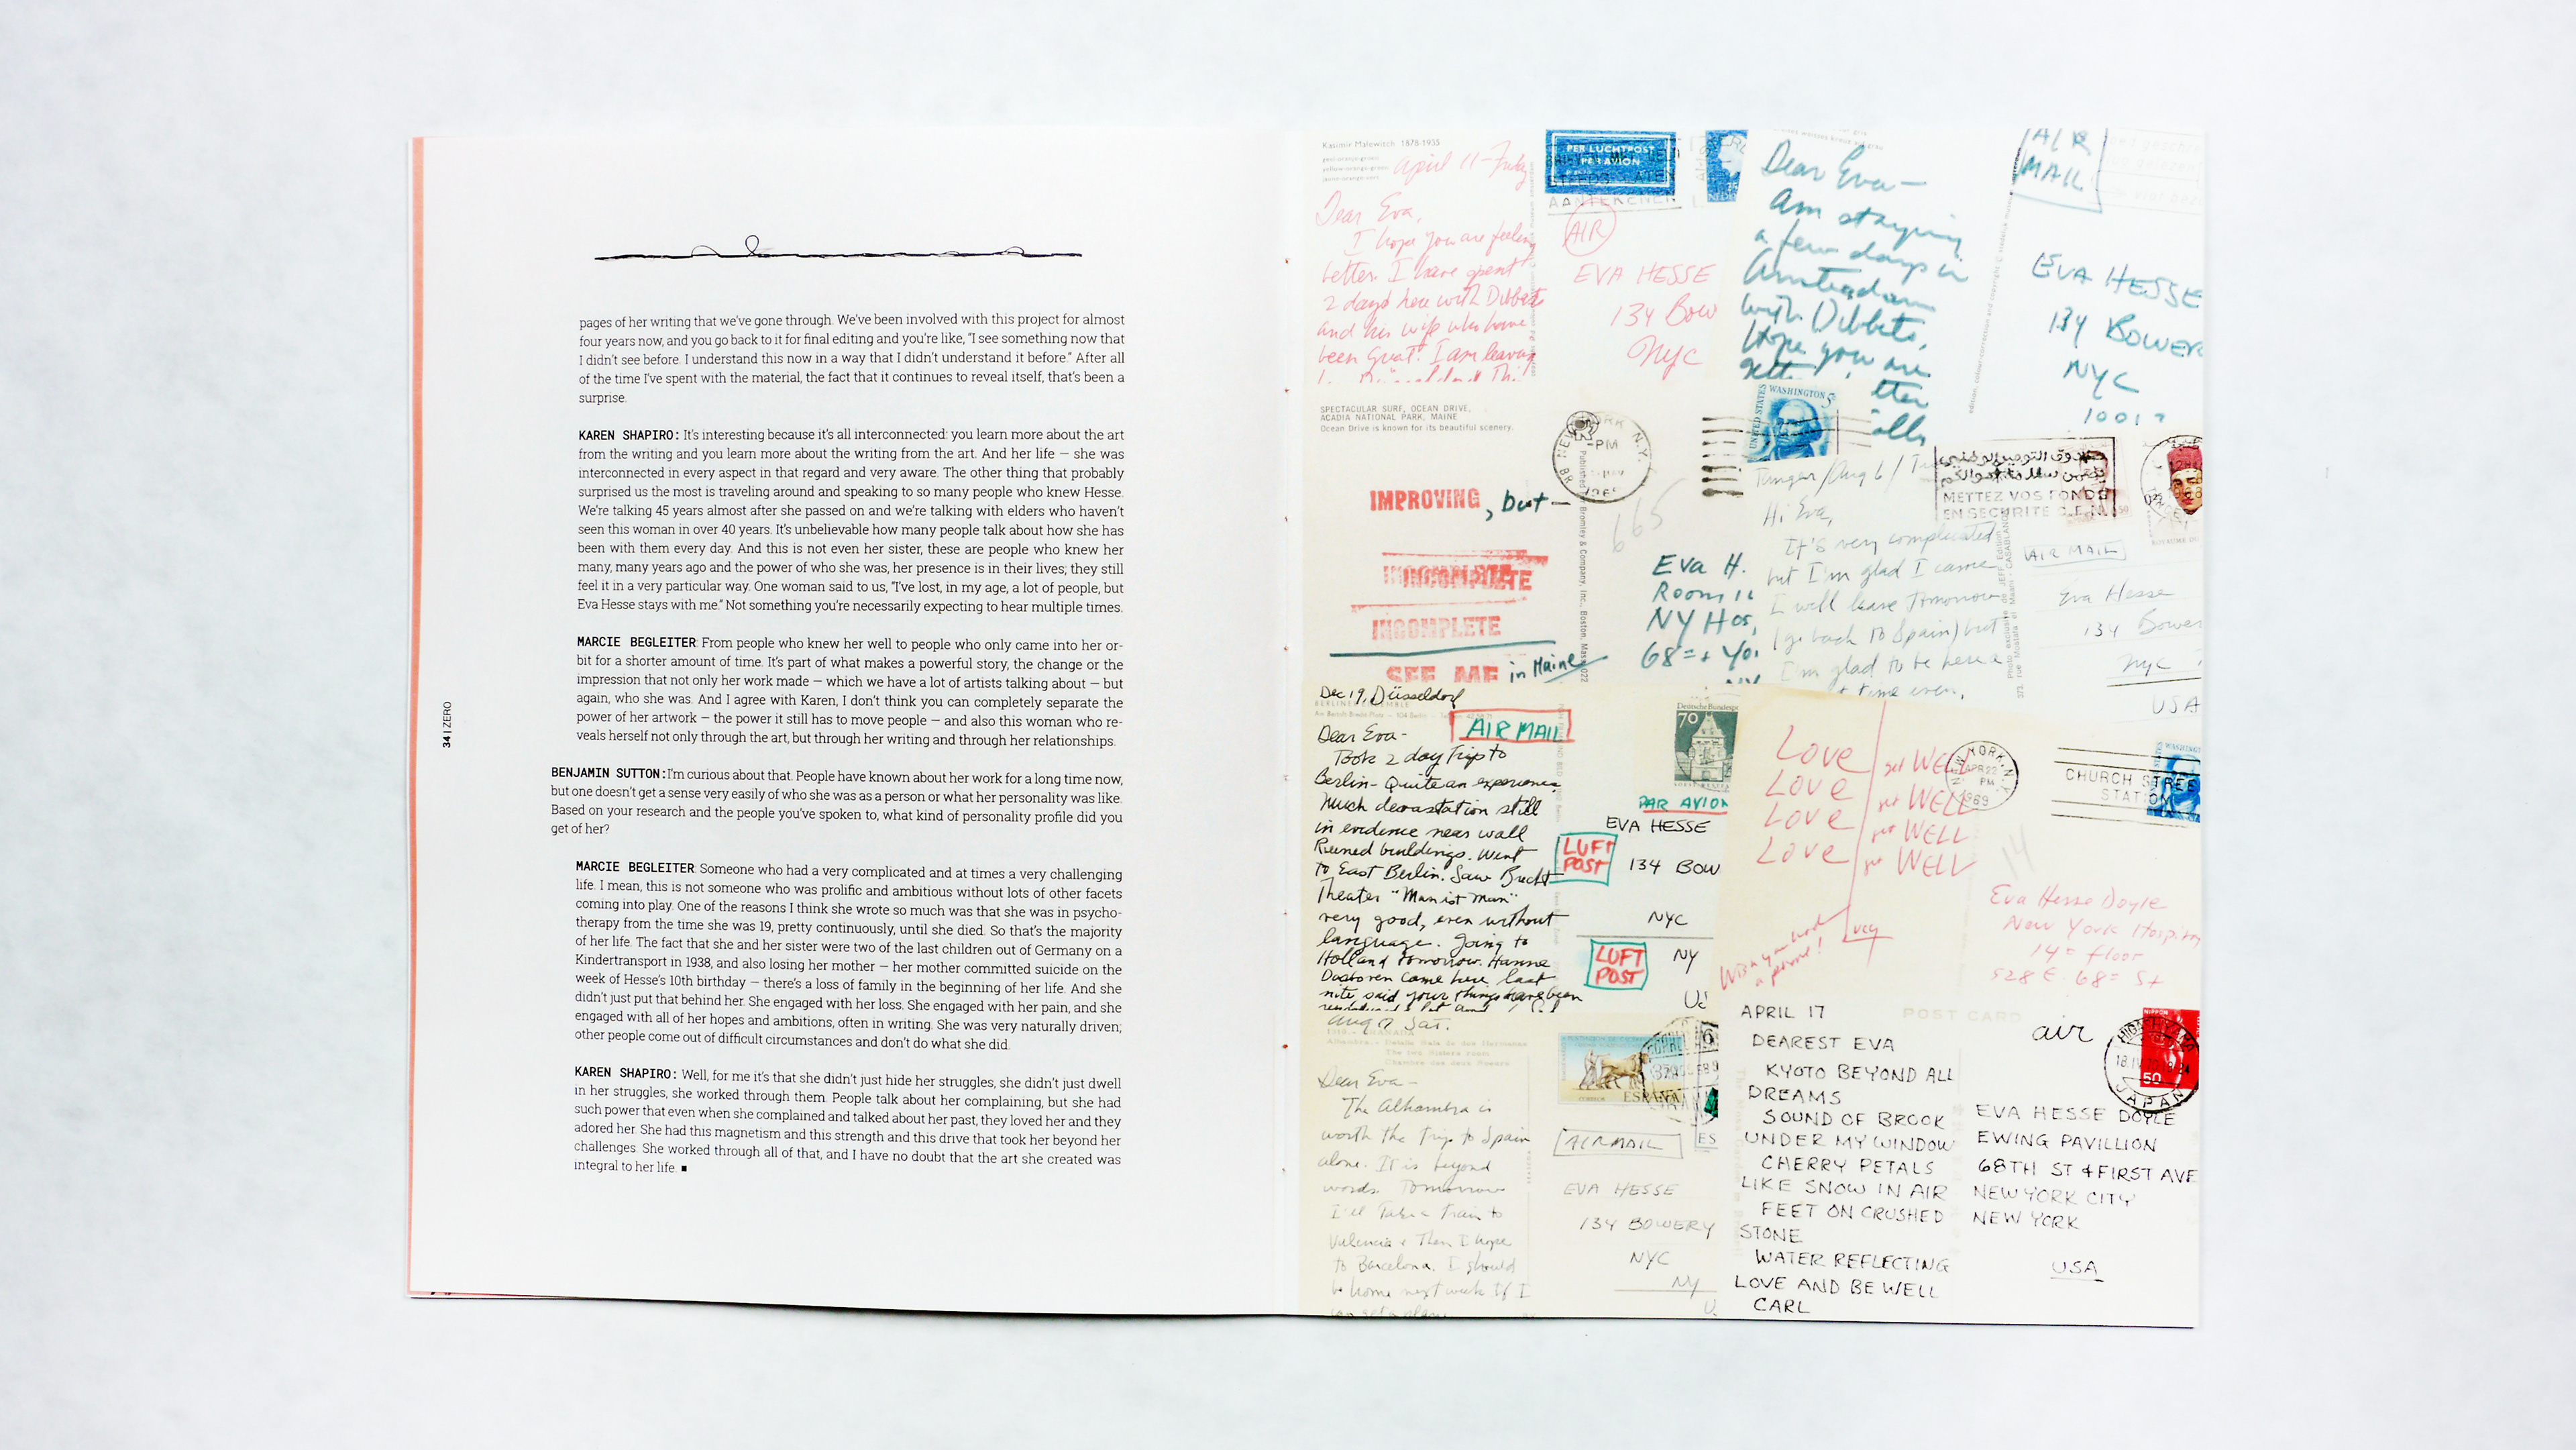 pages of her writing that we've gone through. We've been involved with this project for almost
four years now, and you go back to it for final editing and you're like, "I see something now that
I didn't see before. I understand this now in a way that I didn't understand it before." After all
of the time I've spent with the material, the fact that it continues to reveal itself, that's been a
surprise.
KAREN SHAPIRO: It's interesting because it's all interconnected: you learn more about the art
from the writing and you learn more about the writing from the art. And her life — she was
interconnected in every aspect in that regard and very aware. The other thing that probably
surprised us the most is traveling around and speaking to so many people who knew Hesse.
We're talking 45 years almost after she passed on and we're talking with elders who haven't
seen this woman in over 40 years. It's unbelievable how many people talk about how she has
been with them every day. And this is not even her sister, these are people who knew her
many, many years ago and the power of who she was, her presence is in their lives; they still
feel it in a very particular way. One woman said to us, "I've lost, in my age, a lot of people, but
Eva Hesse stays with me." Not something you're necessarily expecting to hear multiple times.
MARCIE BEGLEITER: From people who knew her well to people who only came into her or-
bit for a shorter amount of time. It's part of what makes a powerful story, the change or the
impression that not only her work made — which we have a lot of artists talking about — but
again, who she was. And I agree with Karen, I don't think you can completely separate the
power of her artwork — the power it still has to move people — and also this woman who re-
veals herself not only through the art, but through her writing and through her relationships.
BENJAMIN SUTTON: I'm curious about that. People have known about her work for a long time now,
but one doesn't get a sense very easily of who she was as a person or what her personality was like.
Based on your research and the people you've spoken to, what kind of personality profile did you
get of her?
MARCIE BEGLEITER: Someone who had a very complicated and at times a very challenging
life. I mean, this is not someone who was prolific and ambitious without lots of other facets
coming into play. One of the reasons I think she wrote so much was that she was in psycho-
therapy from the time she was 19, pretty continuously, until she died. So that's the majority
of her life. The fact that she and her sister were two of the last children out of Germany on a
Kindertransport in 1938, and also losing her mother — her mother committed suicide on the
week of Hesse's 10th birthday — there's a loss of family in the beginning of her life. And she
didn't just put that behind her. She engaged with her loss. She engaged with her pain, and she
engaged with all of her hopes and ambitions, often in writing. She was very naturally driven;
other people come out of difficult circumstances and don't do what she did.
KAREN SHAPIRO: Well, for me it's that she didn't just hide her struggles, she didn't just dwell
in her struggles, she worked through them. People talk about her complaining, but she had
such power that even when she complained and talked about her past, they loved her and they
adored her. She had this magnetism and this strength and this drive that took her beyond her
challenges. She worked through all of that, and I have no doubt that the art she created was
integral to her life. ■
34 | ZERO
Kasimir Malewitsch 1878-1935
April 11 - Friday
Dear Eva,
I hope you are feeling
better. I have spent
2 days here with Dibbets
and his wife who have
been Great! I am leaving
PER LUCHTPOST
PAR AVION
AIR
EVA HESSE
134 Bow
NYC
Dear Eva—
Am staying
a few days in
Amsterdam
with Dibbets,
Hope you are
AIR
MAIL
EVA HESSE
134 BOWER
NYC
SPECTACULAR SURF, OCEAN DRIVE,
ACADIA NATIONAL PARK, MAINE
Ocean Drive is known for its beautiful scenery.
IMPROVING, but —
INCOMPLETE
INCOMPLETE
SEE ME in Maine
UNITED STATES
WASHINGTON 5
Eva H.
Room 11
NY Hos
Hi Eva,
It's very complicated
but I'm glad I came
I will leave Tomorrow
(go back to Spain) but
I'm glad to be here a
METTEZ VOS FONDS
EN SECURITE C.E.N.
AIR MAIL
Eva Hesse
134 Bower
NYC
USA
Dec 19, Düsseldorf
AIR MAIL
Dear Eva—
Took 2 day Trip to
Berlin – Quite an experience
Much devastation still
in evidence near wall
Ruined buildings. Went
to East Berlin. Saw Brecht
Theater "Man ist Man"
very good, even without
language. Going to
Holland Tomorrow. Hanne
Darboven came here last
nite said your things have been
Deutsche Bundesp
70
PAR AVION
EVA HESSE
LUFT
POST
134 BOW
NYC
LUFT
POST
NY
Love get WELL
Love get WELL
Love get WELL
Love get WELL
Lucy
CHURCH STREE
STATION
Eva Hesse Doyle
New York Hospital
14th floor
528 E 68th St
Aug 17 Sat.
Dear Eva—
The Alhambra is
worth the Trip to Spain
alone. It is beyond
words. Tomorrow
I'll Take a Train to
Valencia & Then I hope
to Barcelona. I should
be home next week if I
ESPAÑA
AIRMAIL
EVA HESSE
134 BOWERY
NYC
NY
POST CARD
APRIL 17
DEAREST EVA
KYOTO BEYOND ALL
DREAMS
SOUND OF BROOK
UNDER MY WINDOW
CHERRY PETALS
LIKE SNOW IN AIR
FEET ON CRUSHED
STONE
WATER REFLECTING
LOVE AND BE WELL
CARL
air
NIPPON
50
JAPAN
EVA HESSE DOYLE
EWING PAVILLION
68TH ST & FIRST AVE
NEW YORK CITY
NEW YORK
USA